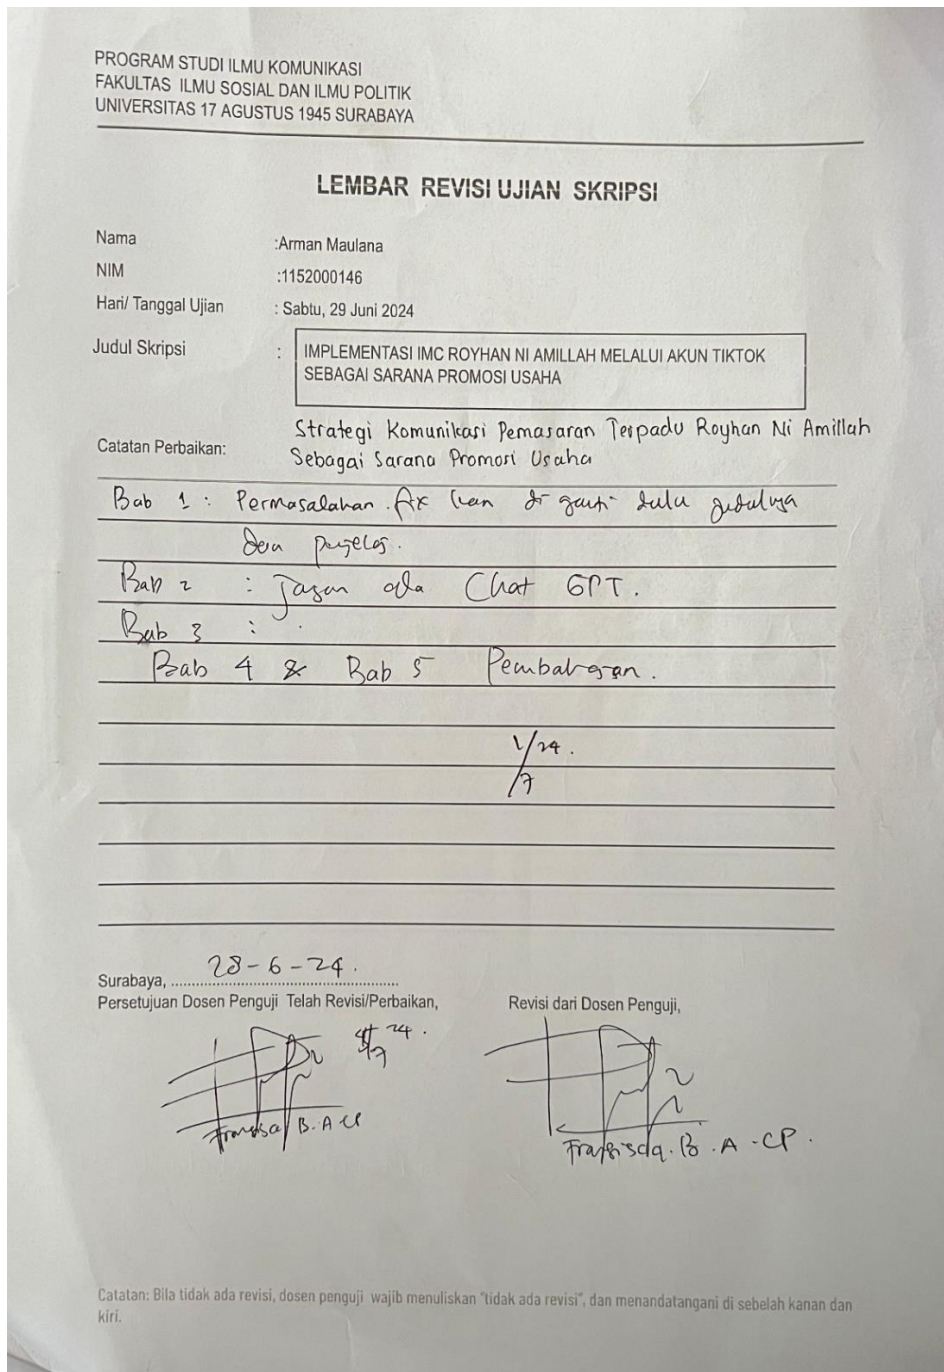 PROGRAM STUDI ILMU KOMUNIKASI
FAKULTAS ILMU SOSIAL DAN ILMU POLITIK
UNIVERSITAS 17 AGUSTUS 1945 SURABAYA
LEMBAR REVISI UJIAN SKRIPSI
Nama :Arman Maulana
NIM :1152000146
Hari/ Tanggal Ujian : Sabtu, 29 Juni 2024
Judul Skripsi : IMPLEMENTASI IMC ROYHAN NI AMILLAH MELALUI AKUN TIKTOK
SEBAGAI SARANA PROMOSI USAHA
Strategi Komunikasi Pemasaran Terpadu Royhan Ni Amillah
Catatan Perbaikan: Sebagai Sarana Promosi Usaha
Bab 1 : Permasalahan. dulu judulnya
Bab 2 : Jangan ada Chat GPT.
Bab 3 : .
Bab 4 & Bab 5 Pembahasan.
1/24.
/7
28-6-24.
Surabaya, ..........
Persetujuan Dosen Penguji Telah Revisi/Perbaikan, Revisi dari Dosen Penguji,
B.A CP
B.A-CP.
Catatan: Bila tidak ada revisi, dosen penguji wajib menuliskan "tidak ada revisi", dan menandatangani di sebelah kanan dan
kiri.